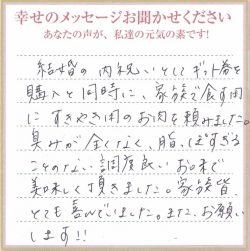 幸せのメッセージお聞かせください
あなたの声が、私達の元気の素です!
結婚の内祝いとしてギフト券を
購入と同時に、家族で食す用
にすきやき用のお肉を頼みました。
臭みが全くなく、脂っぽすぎる
ことのない調度良いお味で
美味しく頂きました。家族皆、
とても喜んでいました。また、お願い
します!!